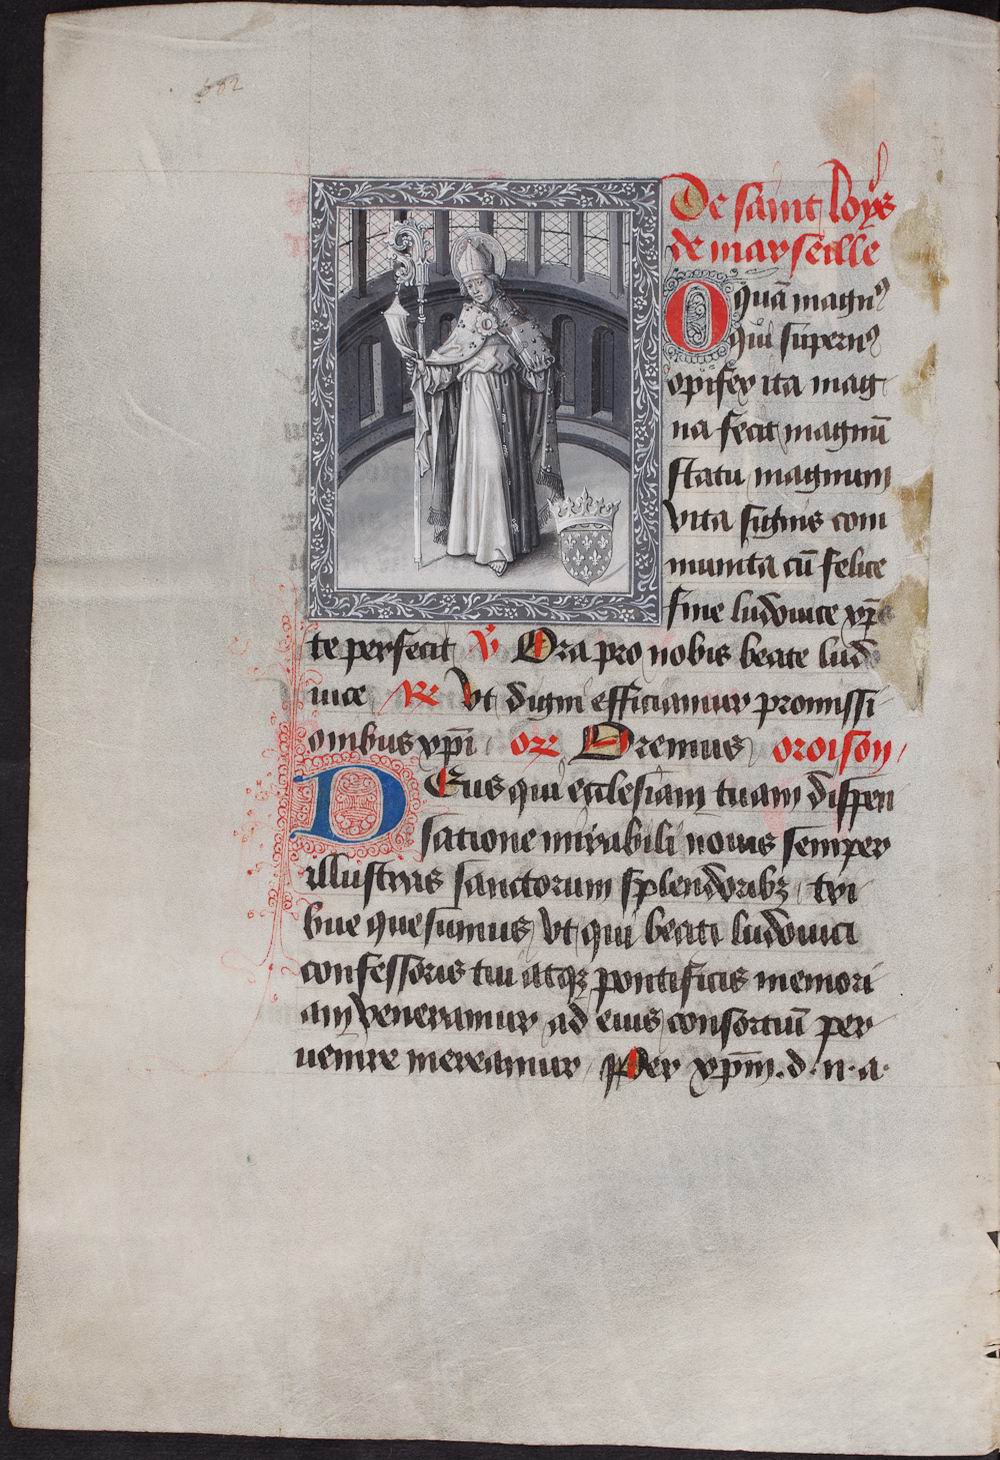 602
De saint loys
de marseille
O quā magnꝰ
qui supernꝰ
opifex ita mag
na fecit magnū
statu magnum
vita signis com
munita cū felice
fine ludouice xp̄e
te perfecit V̄ Ora pro nobis beate ludo
uice R̄ Vt digni efficiamur promissi
onibus xp̄i or Oremus oroison
DEus qui ecclesiam tuam dispen
satione mirabili nouis semper
illustras sanctorum splendoribꝫ tri
bue quesumus vt qui beati ludouici
confessoris tui atqꝫ pontificis memori
am veneramur ad eius consortiū per
uenire mereamur Per xp̄m. d. n. a.